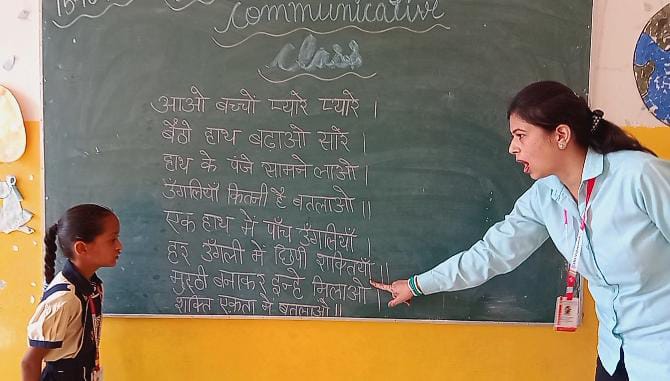 communicative
class
आओ बच्चों प्यारे प्यारे ।
बैठो हाथ बढ़ाओ सारे ।
हाथ के पंजे सामने लाओ ।
उँगलियाँ कितनी है बतलाओ ॥
एक हाथ में पाँच उँगलियाँ ।
हर उँगली में छिपी शक्तियाँ ॥
मुट्ठी बनाकर इन्हे मिलाओ ।
शक्ति एकता ने बतलाओ ॥